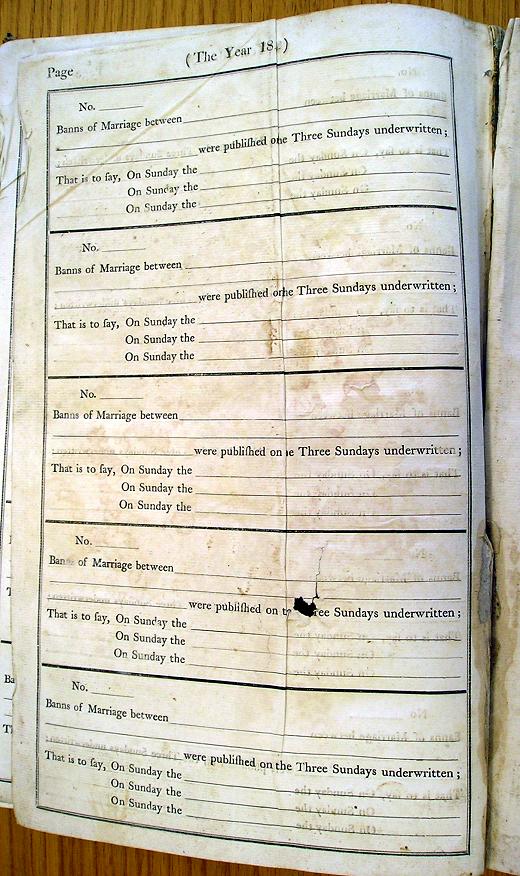 Page (The Year 18 )
No.
Banns of Marriage between
were publiſhed on the Three Sundays underwritten ;
That is to ſay, On Sunday the
On Sunday the
On Sunday the
No.
Banns of Marriage between
were publiſhed on the Three Sundays underwritten ;
That is to ſay, On Sunday the
On Sunday the
On Sunday the
No.
Banns of Marriage between
were publiſhed on the Three Sundays underwritten ;
That is to ſay, On Sunday the
On Sunday the
On Sunday the
No.
Banns of Marriage between
were publiſhed on Sundays underwritten ;
That is to ſay, On Sunday the
On Sunday the
On Sunday the
No.
Banns of Marriage between
were publiſhed on the Three Sundays underwritten ;
That is to ſay, On Sunday the
On Sunday the
On Sunday the